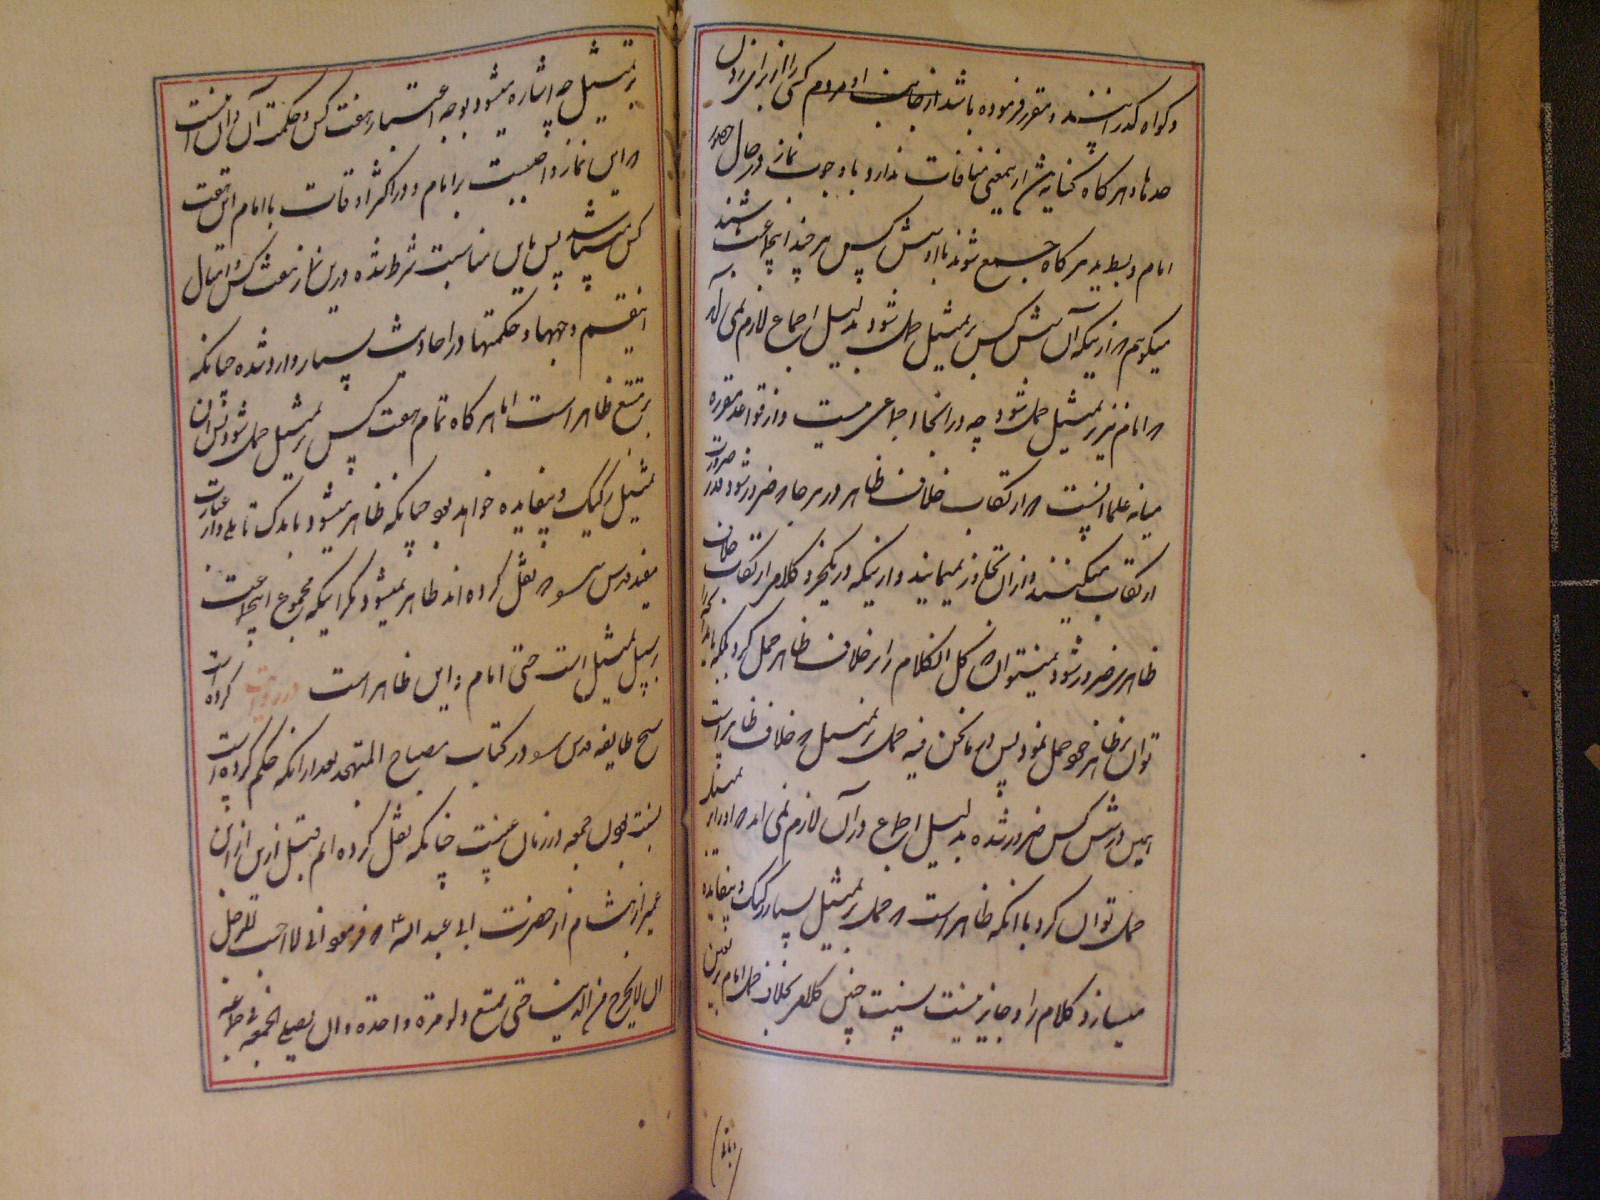 و کواه کدر انند و مقرر فرموده باشد از جانب او مردم کسی را از برای زدن
حدها و هر کاه کنایه از بمعنی منافات ندارد با وجوب نماز در حال حضور
امام و بسط ید هر کاه جمع شوند با او شش کس هر چند اینجماعت نباشند
میکویم که از اینکه آن شش کس بر تمثیل حمل شود بدلیل اجماع لازم نمی آید
که امام نیز بر تمثیل حمل شود چه در انجا اجماعی نیست و از قواعد مقرره
میانه علما اینست که ارتکاب خلاف ظاهر در هر جا که ضرور شود بقدر ضرورت
ارتکاب میکنند و از ان تجاوز نمینمایند و از اینکه در یکجزو کلام ارتکاب خلاف
ظاهری ضرور شود نمیتوان کل الکلام را بر خلاف ظاهر حمل کرد بلکه
توان بر ظاهر خود حمل نمود پس در ما نحن فیه حمل بر تمثیل که خلاف ظاهر است
همین در شش کس ضرور شده بدلیل اجماع و از آن لازم نمی اید که
حمل توان کرد با انکه ظاهر است که حمل بر تمثیل بسیار رکیک و بیفایده
میسازد کلام را و جایز نیست نسبت چنین کلام بخلاف حمل امام بر تعیین
بر تمثیل چه اشاره میشود بوجه اعتبار هفت کس و حکمت آن و ان اینست
که این نماز واجبیست با امام و در اکثر اوقات با امام این هفت
کس میباشد پس باین مناسبت شرط شده در این نماز هفت کس و امثال
اینقسم وجهها و حکمتها در احادیث بسیار وارد شده چنانکه
بر متتبع ظاهر است اما هر کاه تمام هفت کس بر تمثیل حمل شود پس ان
تمثیل رکیک و بیفایده خواهد بود چنانکه ظاهر میشود باندک تاملی و از عبارت
مفید قدس سره که نقل کرده اند ظاهر نمیشود مکر اینکه مجموع اینجماعت
بر سبیل تمثیل است حتی امام و این ظاهر است کرده است
شیخ طایفه قدس سره در کتاب مصباح المتهجد بعد از انکه حکم کرده است
بسنت بودن جمعه در زمان غیبت چنانکه نقل کرده ایم قبل از این از ابن ابی
عمیر از هشام از حضرت ابی عبد الله ع که فرمود انی لاحب للرجل
ان لا یخرج من الدنیا حتی یتمتع ولو مرة واحدة وان یصلی الجمعة فی جماعة